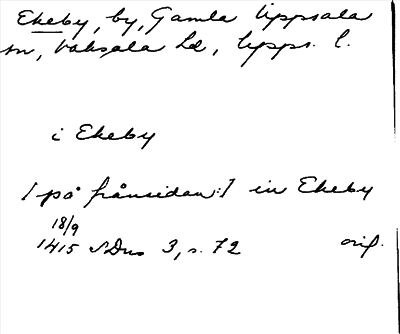 Ekeby, by, Gamla Uppsala
sn, Vaksala hd, Upps. l.
i Ekeby
[på frånsidan:] in Ekeby
18/9
1415 SDns 3, s. 72 orig.